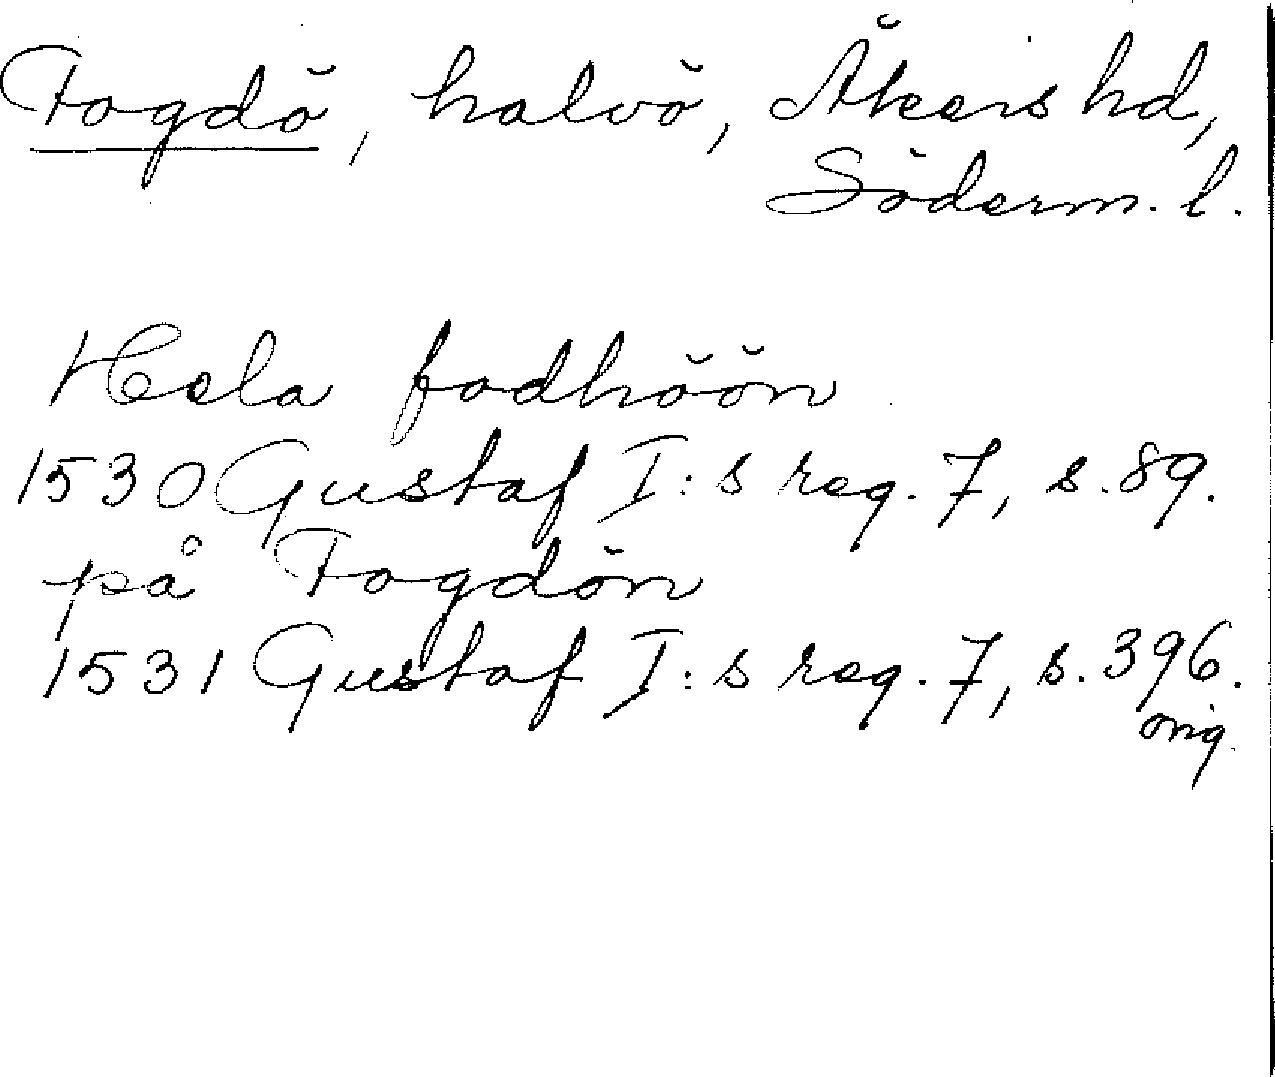 Fogdö, halvö, Åkers hd,
Söderm. l.
Hela fodhöön
1530 Gustaf I:s reg. 7, s. 89.
på Fogdön
1531 Gustaf I:s reg. 7, s. 396.
orig.